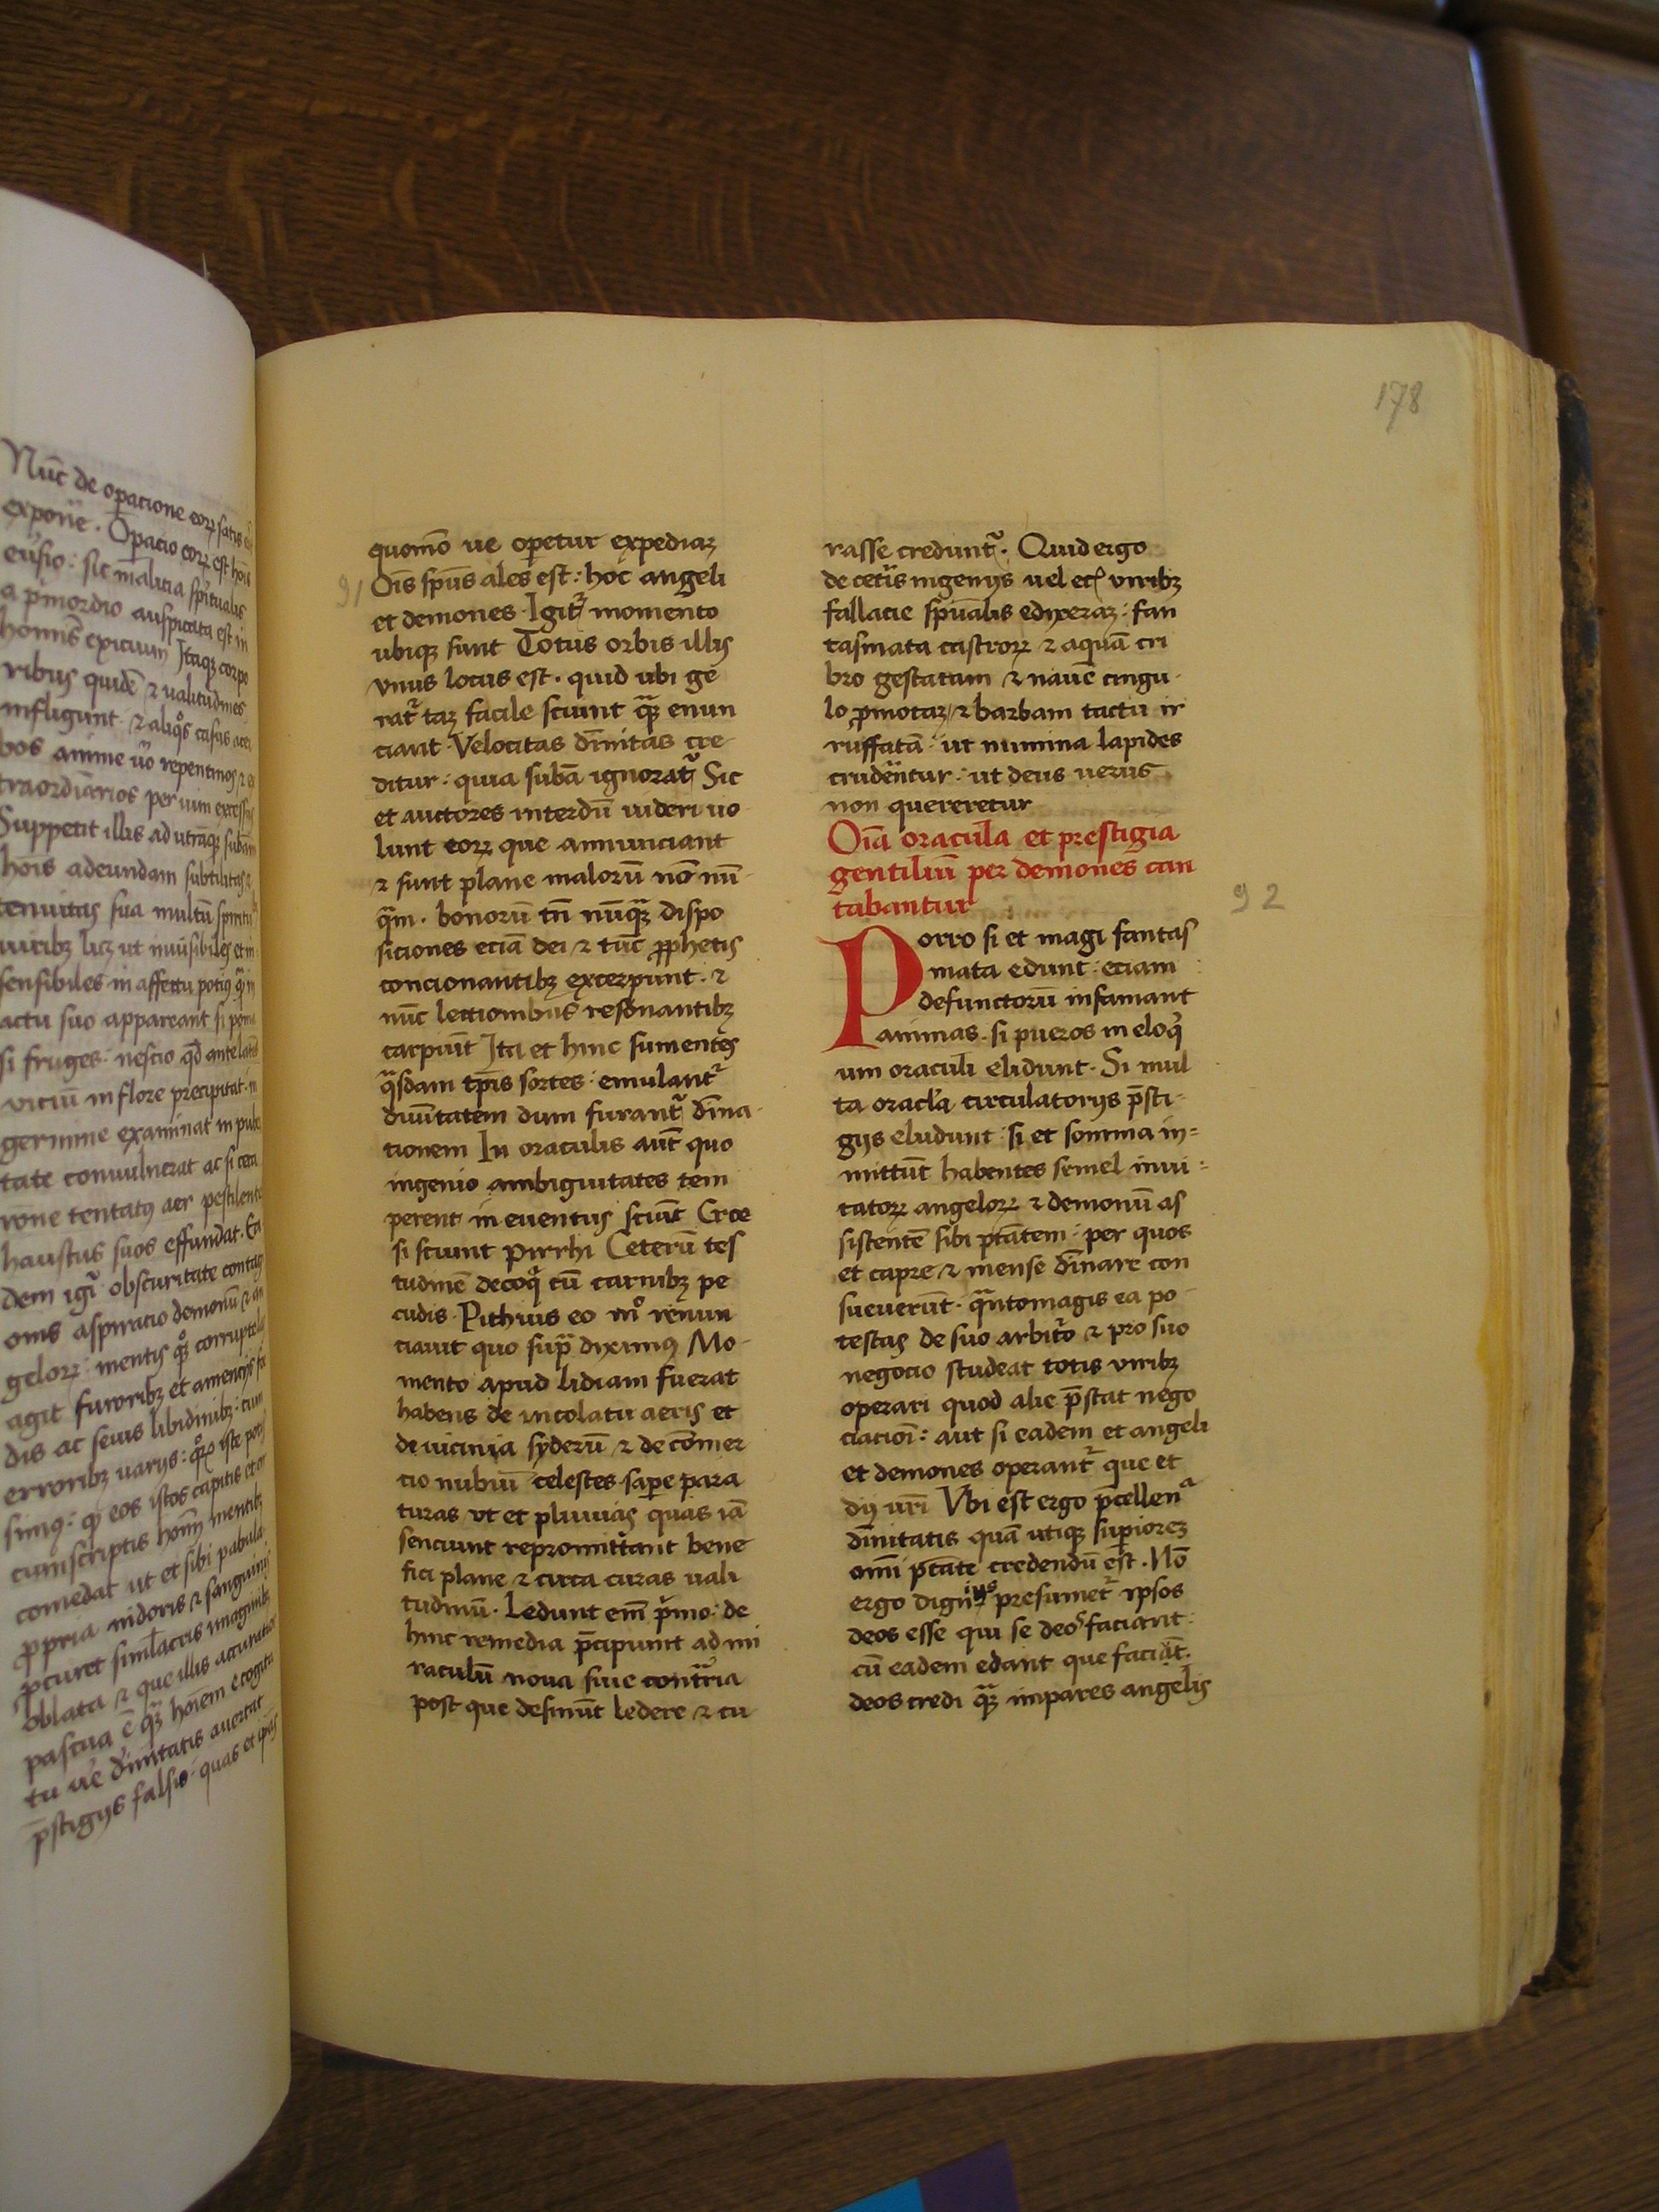 Nūc de operacione eorꝝ satis
expōne. Operacio eorꝝ est hoīs
eūsio: sic malicia spūalis
a pmordio auspicata est in
homīs exicium Itaqꝫ corpo
ribus quidē ⁊ ualitudines
infligunt ⁊ aliqͦs casus acer
bos anime ūo repentinos ⁊ ex
traordinarios per uim excessus
Suppetit illis ad utrāqꝫ subām
hois adeundam subtilitas ⁊
tenuitas sua multū spiritu
uiribꝫ licꝫ ut inuisibiles et in
sensibiles in affectu potiꝰ qͣꝫ in
actu suo appareant si poma
si fruges nescio qd ante latēs
viciū in flore precipitat in
germine examinat in puber
tate conuulnerat ac si ceca
rone tentatꝰ aer pestilentes
haustus suos effundat. Ea
dem igiͬ obscuritate contagi
onis aspiratio demonū ⁊ an
gelorꝝ mentis qͦꝫ corruptelas
agit furoribꝫ et amencijs fe
dis ac seuis libidinibꝫ cum
erroribꝫ uarijs: qͦrꝫ iste poti
simꝰ: qͥ eos istos captis et cir
cumscriptis homm mentibꝫ
comedat ut et sibi pabula
ꝓpria nidoris ⁊ sanguinis
ꝓcuret simlacris imaginibꝫ
oblata ⁊ que illis accuratior
pascua ē qͣꝫ hoīem e cogita
tu ue dīnitatis auertat
p̄stigijs falsis quas et ipas
178
quomō ue operetur expediaꝫ
91
Oīs spūs ales est: hoc angeli
et demones. Igitͬ momento
ubiqꝫ sunt Totus orbis illis
vnus locus est. quid ubi ge
ratͬ taꝫ facile sciunt qͣꝫ enun
ciant Velocitas dīnitas cre
ditur: quia subā ignoratͬ Sic
et auctores interdū uideri uo
lunt eorꝝ que annunciant
⁊ sunt plane malorū nō nū
qͣm. bonorū tn̄ nūqͣꝫ dispo
siciones eciā dei ⁊ tūc ꝓphetis
concionantibꝫ excerpunt. ⁊
nūc lectionibus resonantibꝫ
carpūt Ita et hinc sumentes
qͣsdam tp̄is sortes emulantͬ
diuītatem dum furantͬ dīna
tionem In oraculis aūt quo
ingenio ambiguitates tem
perent in euentus sciūt Croe
si sciunt pirrhi Ceterū tes
tudinē decoqͥ cū carnibꝫ pe
cudis. Pithius eo mͦ renun
ciauit quo supͣ diximꝰ Mo
mento apud lidiam fuerat
habens de incolatu aeris et
de uicinia syderū ⁊ de cōmer
cio nubiū celestes sapere para
turas vt et pluuias quas iā
senciunt repromittant bene
fici plane ⁊ circa curas uali
tudinū. Ledunt em̄ pͥmo: de
hinc remedia p̄cipiunt ad mi
raculū noua siue contͣria
post que desinūt ledere ⁊ cu
rasse creduntͬ. Quid ergo
de ceteris ingenijs uel ecͥ viribꝫ
fallacie spūalis edixeraꝫ: fan
tasmata castrorꝝ ⁊ aquā cri
bro gestatam ⁊ nauē cingu
lo ꝓmotaꝫ ⁊ barbam tactu ir
ruffatā: ut numina lapides
crudētur: ut deus uerus
non quereretur
Oīa oracula et prestigia
gentiliū per demones can
tabantur
92
Porro si et magi fantas
mata edunt: eciam
defunctorū infamant
animas. si pueros in eloqͥ
um oraculi elidunt. Si mul
ta oracl̄a circulatorijs p̄sti
gijs eludunt si et somnia in=
mittūt habentes semel inui=
tatorꝝ angelorꝝ ⁊ demonū as
sistentē sibi ptātem: per quos
et capre ⁊ mense dīnare con
sueuerūt. qͣntomagis ea po
testas de suo arbitͦ ⁊ pro suo
negocio studeat totis viribꝫ
operari quod alie p̄stat nego
ciacioī: aut si eadem et angeli
et demones operantͬ que et
dij uri Vbi est ergo p̄cellenͣ
dīnitatis quā utiqꝫ superioreꝫ
omī ptāte credendū est. Nō
ergo dignius presumetͬ ipsos
deos esse qui se deos faciant:
cū eadem edant que faciāt.
deos credi qͣꝫ impares angelis